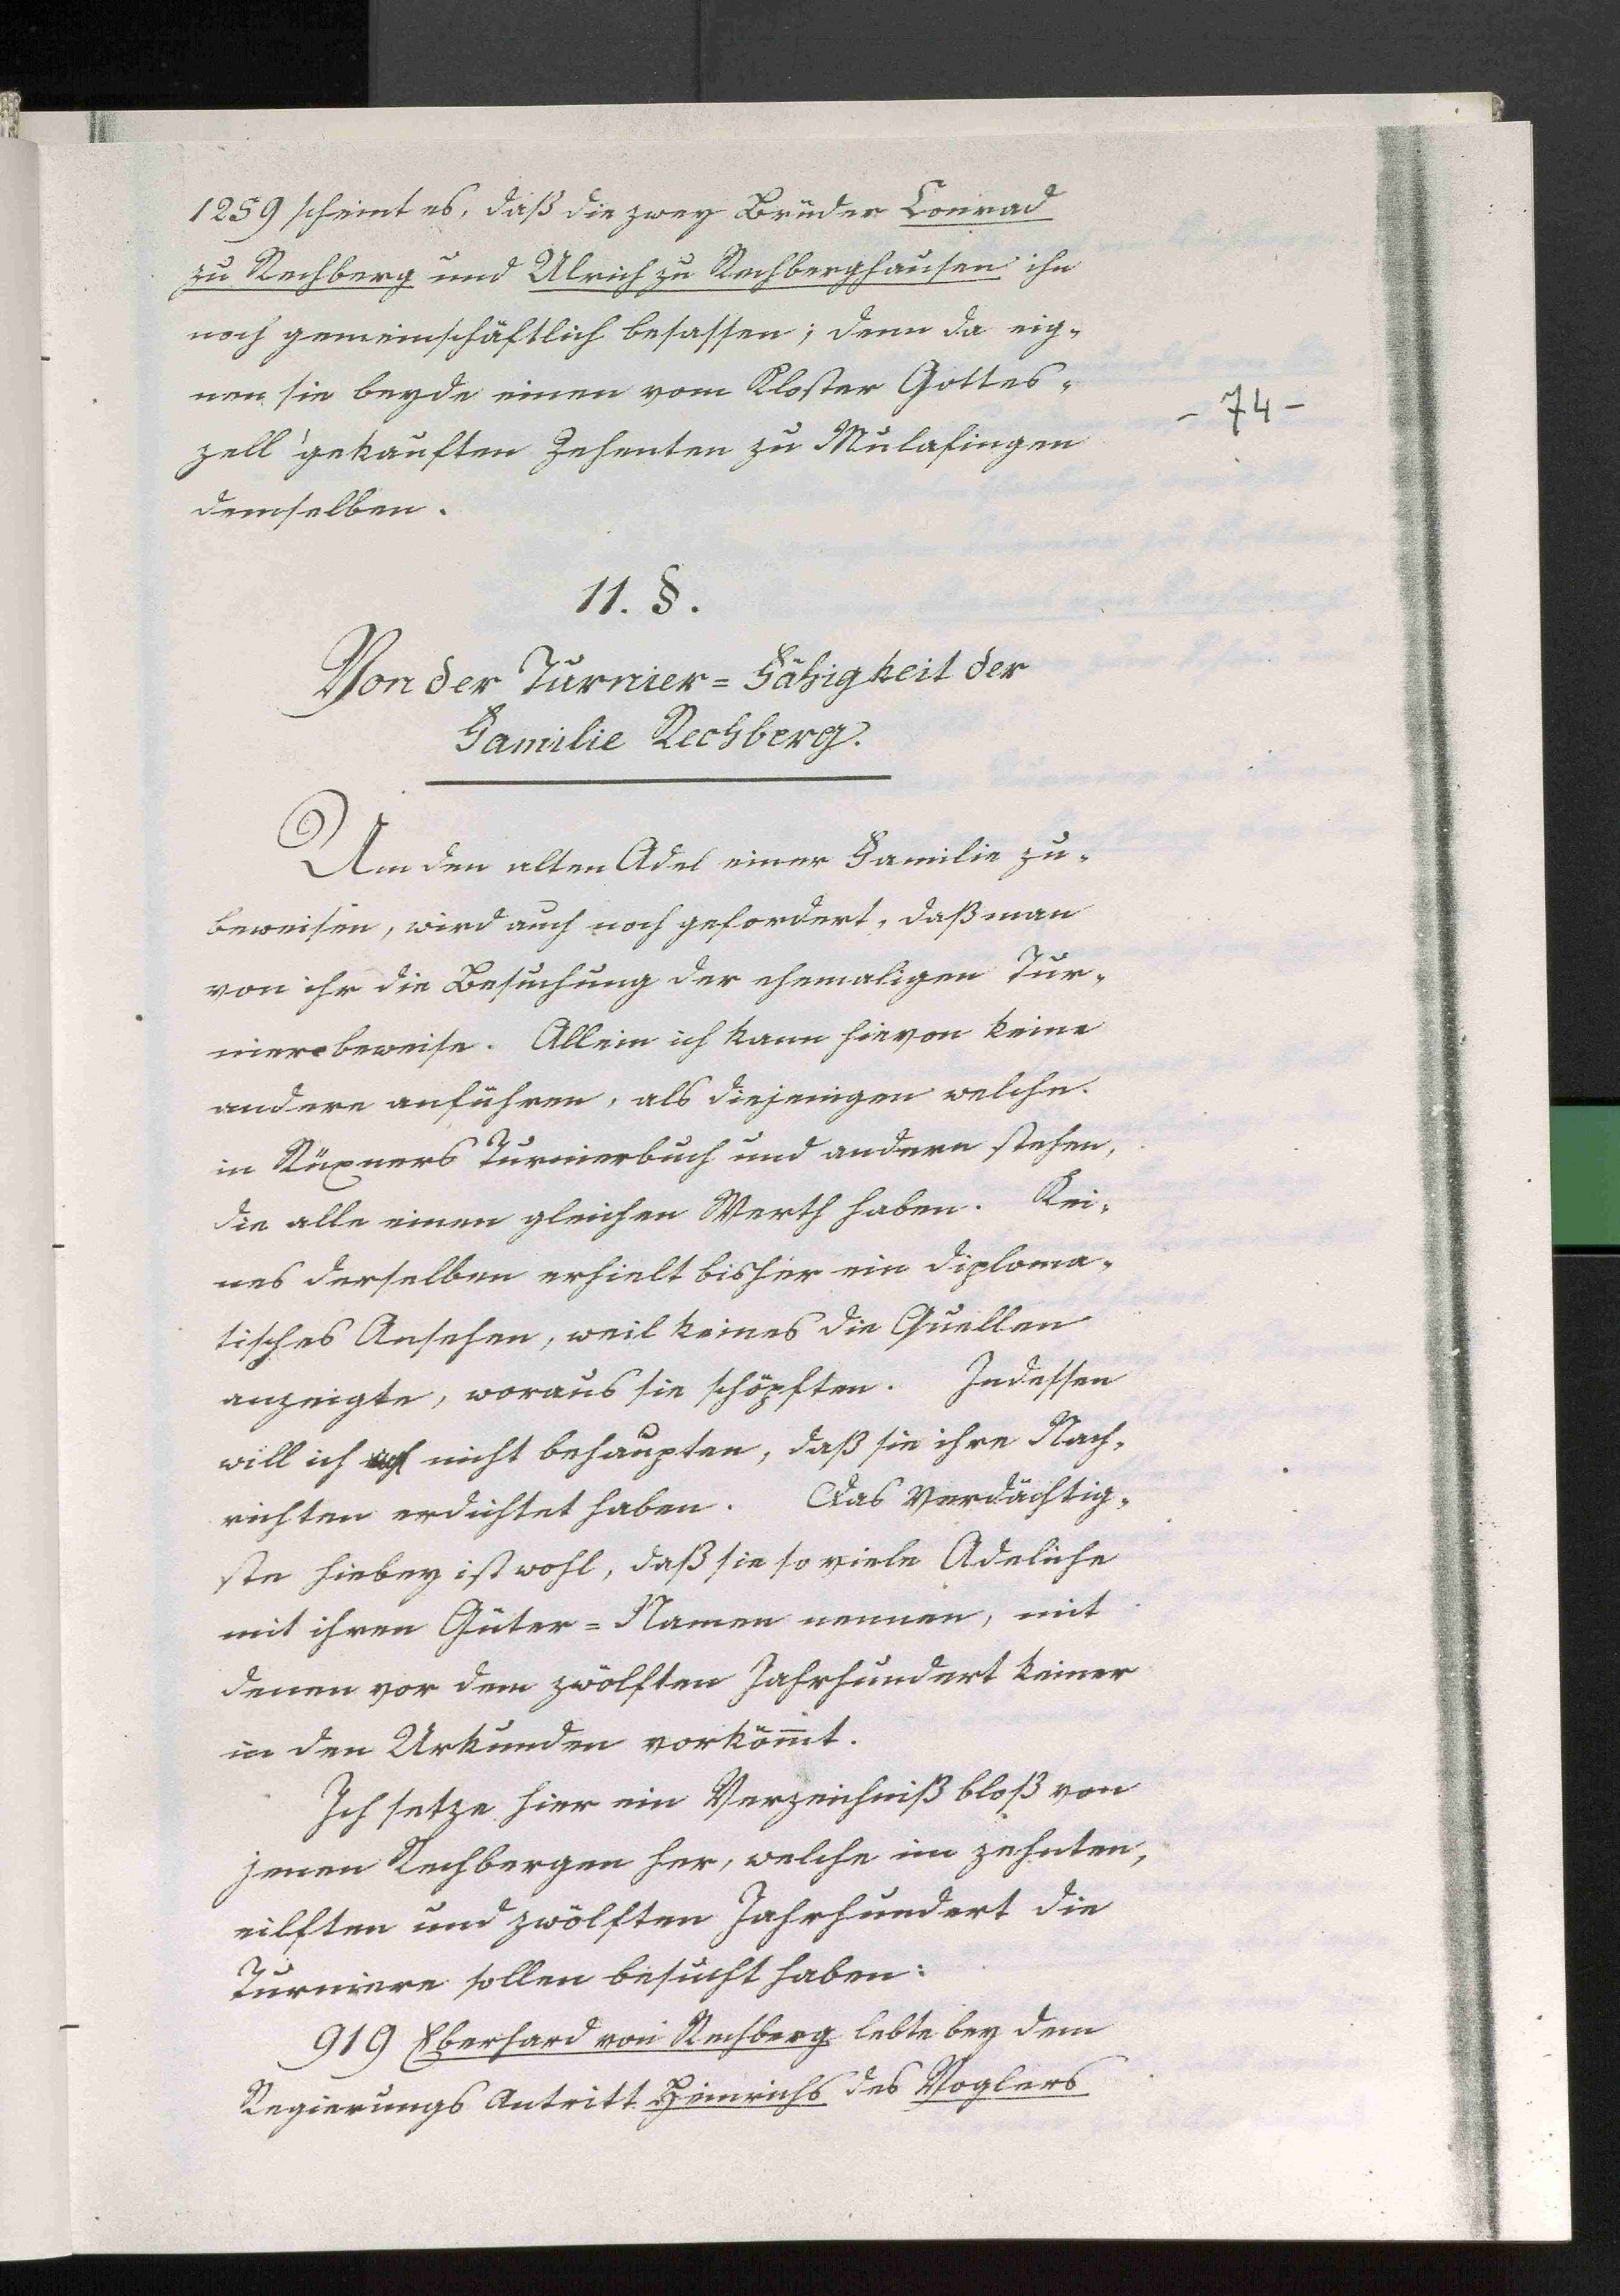 1259 scheint es, daß die zwey Brüder Conrad
zu Rechberg und Ulrich zu Rechberghausen ihn
noch gemeinschäftlich besassen; denn da eig-
nen sie beyde einen vom Kloster Gottes-
- 74 -
zell gekauften Zehenten zu Mulafingen
demselben.
11. §.
Von der Turnier=Fähigkeit der
Familie Rechberg.
Um den alten Adel einer Familie zu-
beweisen, wird auch noch gefordert, daß man
von ihr die Besuchung der ehemaligen Tur-
niere beweise. Allein ich kann hievon keine
andere anführen, als diejenigen welche
in Rüxners Turnierbuch und andern stehen,
die alle einen gleichen Werth haben. Kei-
nes derselben erhielt bisher ein diploma-
tisches Ansehen, weil keines die Quellen
anzeigte, woraus sie schöpften. Indessen
will ich nicht behaupten, daß sie ihre Nach-
richten erdichtet haben. Das Verdächtig-
ste hiebey ist wohl, daß sie so viele Adeliche
mit ihren Güter=Namen nennen, mit
denen vor dem zwölften Jahrhundert keiner
in den Urkunden vorkömt.
Ich setze hier ein Verzeichniß bloß von
jenen Rechbergen her, welche im zehnten,
eilften und zwölften Jahrhundert die
Turniere sollen besucht haben:
919 Eberhard von Rechberg lebte bey dem
Regierungs Antritt Heinrichs des Voglers